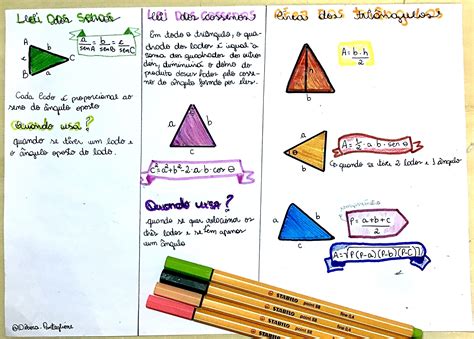 Lei dos senos
a/senA = b/senB = c/senC
A
b
C
a
B
c
Cada lado é proporcional ao
seno do ângulo oposto
Quando usa?
quando se tiver um lado e
o ângulo oposto do lado.
Lei dos cossenos
Em todo o triângulo, o qua-
drado do lados é igual a
soma dos quadrados do outros
dois, diminuirá o dobro do
produto desses lados pelo cosse-
no do ângulo formado por eles.
a
b
c
c²=a²+b²-2·a·b·cos θ
Quando usa?
quando se quer relacionar os
três lados e se tem apenas
um ângulo
Área dos triângulos
h
b
A= b·h/2
a
θ
b
A=½·a·b·sen θ
quando se tiver 2 lados e 1 ângulo
a
b
c
semiperímetro
P= a+b+c/2
A=√P(P-a)(P-b)(P-c)
STABILO point 88 fine 0,4
STABILO point 88 fine 0,4
STABILO point 88 fine 0,4
STABILO point 88 fine 0,4